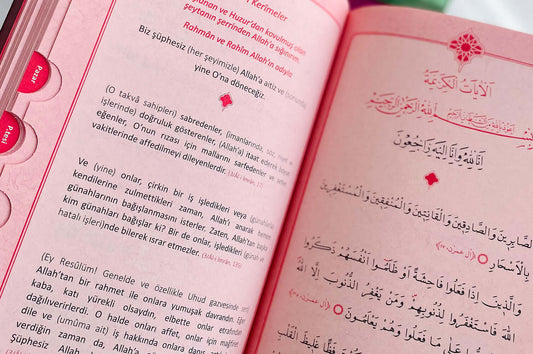 Pazar
P.tesi
Kerîmeler
ve Huzur'dan kovulmuş olan
şeytanın şerrinden Allah'a sığınırım.
Rahmân ve Rahîm Allah'ın adıyla
Biz şüphesiz (her şeyimizle) Allah'a aitiz ve
yine O'na döneceğiz.
(O takvâ sahipleri) sabredenler, (imanlarında, söz,
işlerinde) doğruluk gösterenler, (Allah'a) itaat ederek boyun
eğenler, O'nun rızası için mallarını sarfedenler ve seher
vakitlerinde affedilmeyi dileyenlerdir. (3/Âl-i İmrân, 17)
Ve (yine) onlar, çirkin bir iş işledikleri veya (günahla)
kendilerine zulmettikleri zaman, Allah'ı anarak hemen
günahlarının bağışlanmasını isterler. Zaten, Allah'tan başka
kim günahları bağışlar ki? Bir de onlar, işledikleri (günah ve
hatalı işleri)nde bilerek ısrar etmezler. (3/Âl-i İmrân, 135)
(Ey Resûlüm! Genelde ve özellikle Uhud gazvesinde
Allah'tan bir rahmet ile onlara yumuşak davrandın. Eğer
kaba, katı yürekli olsaydın, elbette onlar etrafından
dağılıverirlerdi. O halde onları affet, onlar için mağfiret
dile ve (umûma ait) iş hakkında onlara danış
verdiğin zaman da, Allah'a
Şüphesiz Allah
اَلْاٰيَاتُ الْكَرِيمَةُ
اِنَّا لِلّٰهِ وَاِنَّا اِلَيْهِ رَاجِعُونَ
اَلصَّابِرِينَ وَالصَّادِقِينَ وَالْقَانِتِينَ وَالْمُنْفِقِينَ وَالْمُسْتَغْفِرِينَ
بِالْاَسْحَارِ
وَالَّذِينَ اِذَا فَعَلُوا فَاحِشَةً اَوْ ظَلَمُوا اَنْفُسَهُمْ ذَكَرُوا
اللّٰهَ فَاسْتَغْفَرُوا لِذُنُوبِهِمْ وَمَنْ يَغْفِرُ الذُّنُوبَ اِلَّا اللّٰهُ
عَلٰى مَا فَعَلُوا وَهُمْ يَعْلَمُونَ
غَلِيظَ الْقَلْبِ